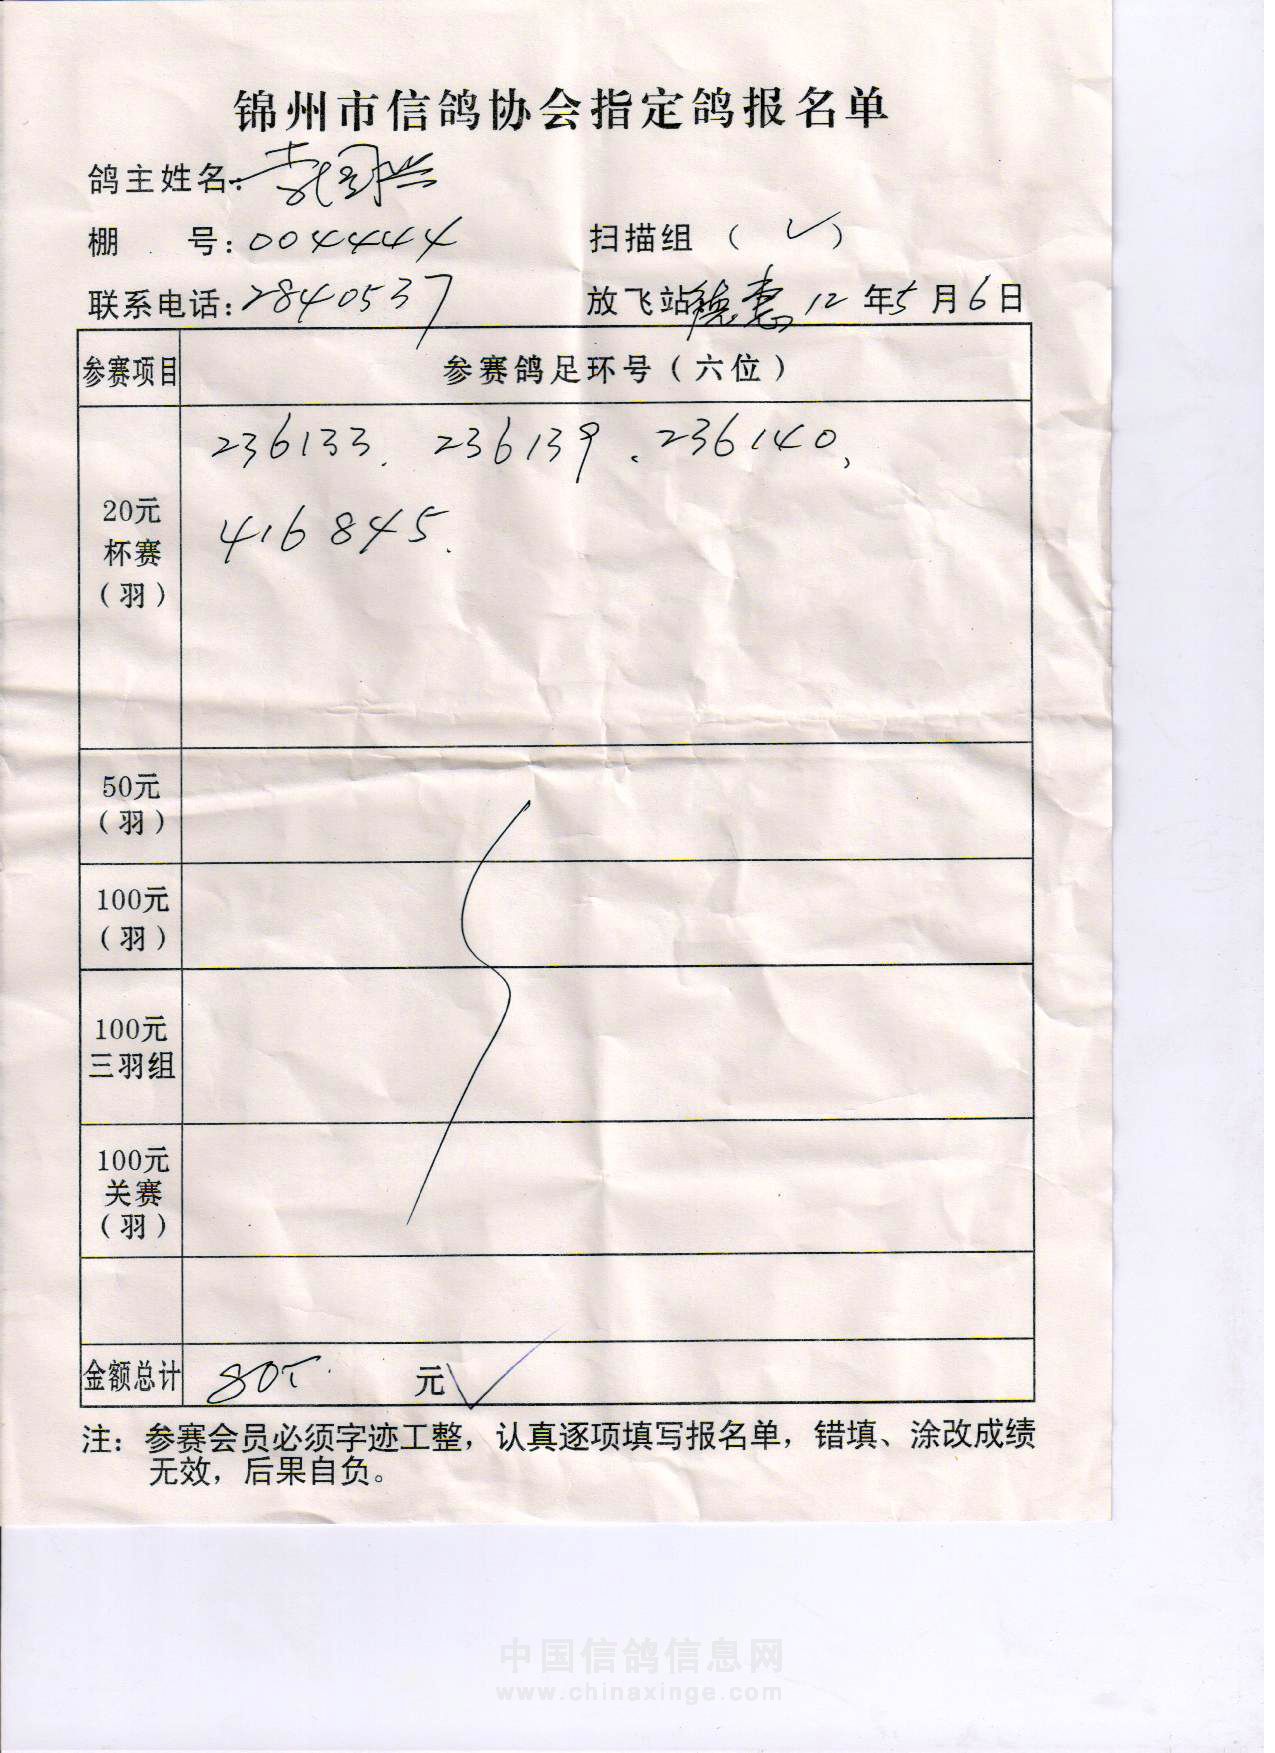 锦州市信鸽协会指定鸽报名单
鸽主姓名:
棚 号:004444 扫描组 ( ✓ )
联系电话:2840537 放飞站 德惠 12年5月6日
参赛项目 参赛鸽足环号(六位)
20元
杯赛
(羽)
236133. 236139、236140、
416845.
50元
(羽)
100元
(羽)
100元
三羽组
100元
关赛
(羽)
金额总计 80 元
注: 参赛会员必须字迹工整, 认真逐项填写报名单, 错填、涂改成绩
无效, 后果自负。
中国信鸽信息网
www.chinaxinge.com